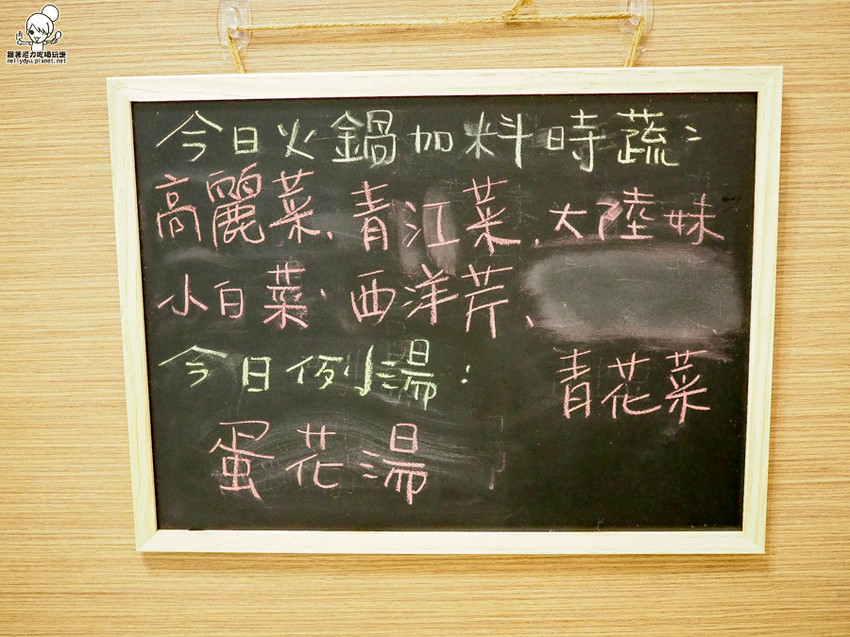 跟著尼力吃喝玩樂
nellydyu.pixnet.net
今日火鍋加料時蔬:
高麗菜、青江菜、大陸妹
小白菜、西洋芹、
今日例湯:
青花菜
蛋花湯